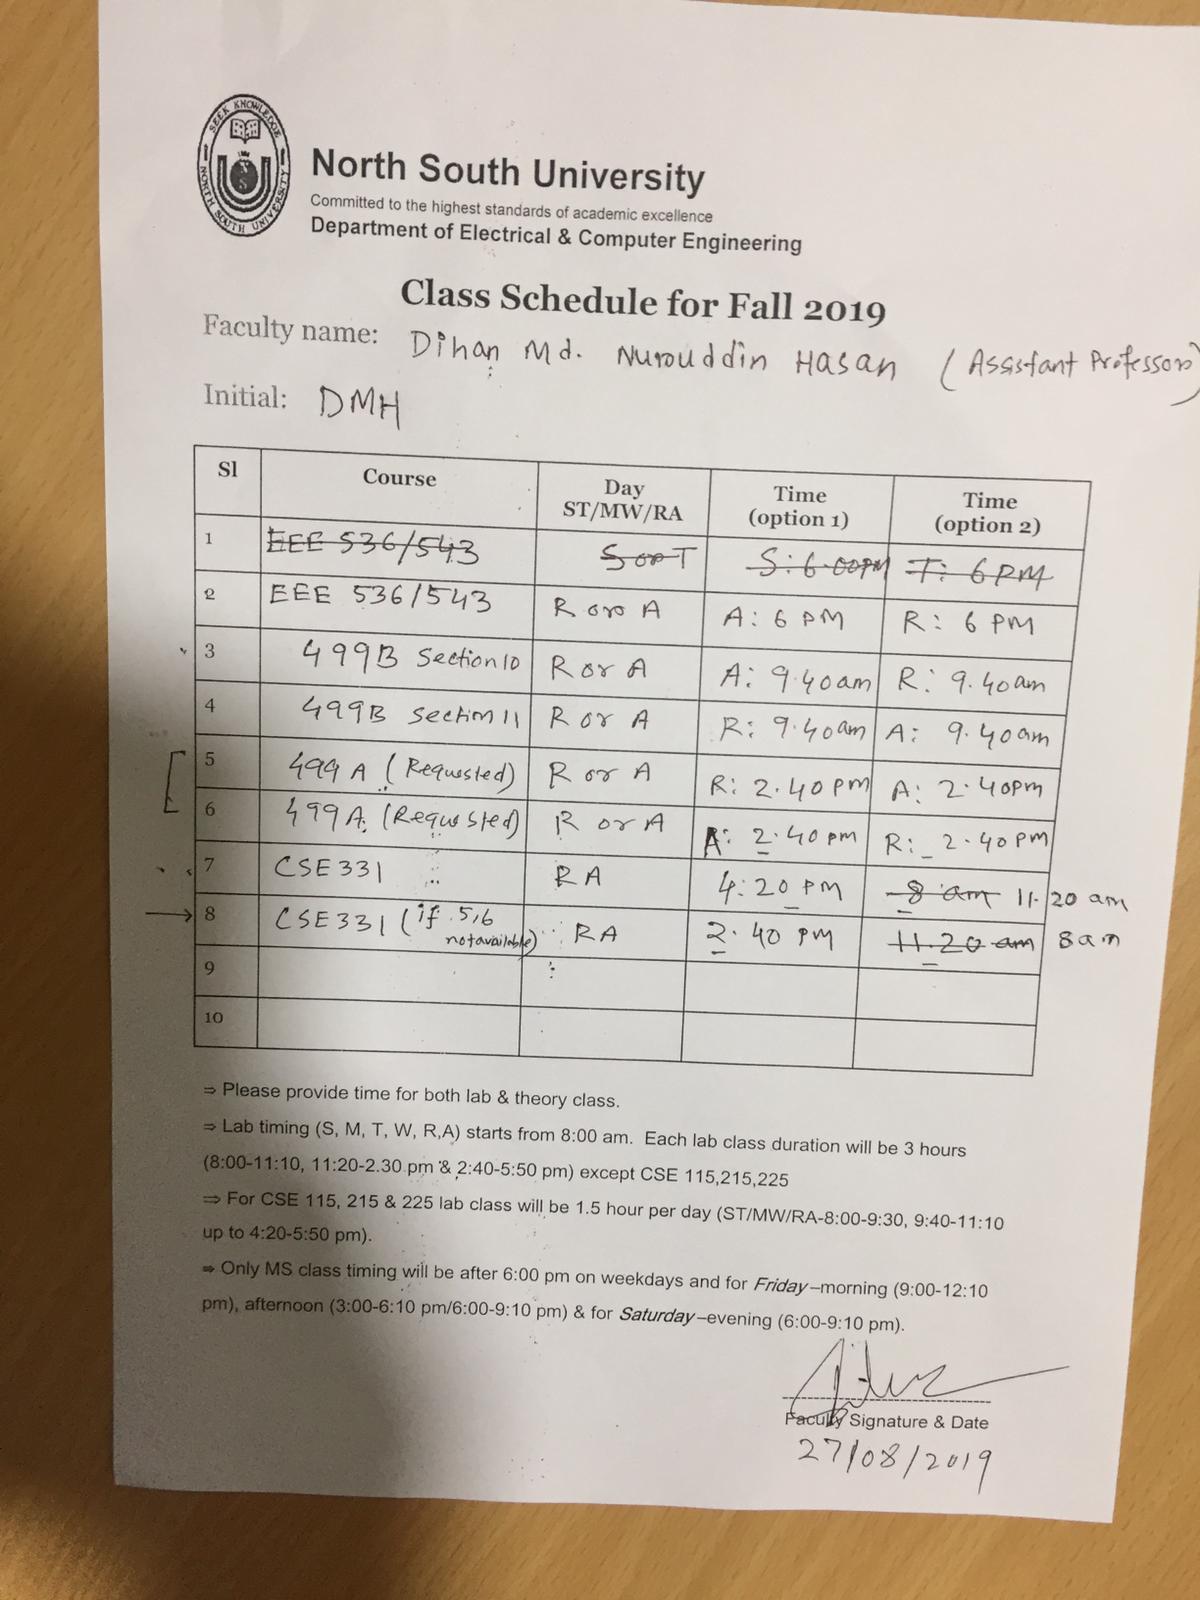 SEEK KNOWLEDGE
NORTH SOUTH UNIVERSITY
North South University
Committed to the highest standards of academic excellence
Department of Electrical & Computer Engineering
Class Schedule for Fall 2019
Faculty name: Dihan Md. Nurouddin Hasan (Assistant Professor)
Initial: DMH
Sl Course Day ST/MW/RA Time (option 1) Time (option 2)
1 EEE 536/543 S or T S: 6.00PM T: 6 PM
2 EEE 536/543 R or A A: 6 PM R: 6 PM
3 499B Section 10 R or A A: 9.40am R: 9.40am
4 499B Section 11 R or A R: 9.40am A: 9.40am
5 499A (Requested) R or A R: 2.40pm A: 2.40pm
6 499A (Requested) R or A A: 2.40pm R: 2.40pm
7 CSE331 RA 4:20 PM 8 am 11.20 am
8 CSE331 (if 5,6 not available) RA 2.40 PM 11.20 am 8am
9
10
⇒ Please provide time for both lab & theory class.
⇒ Lab timing (S, M, T, W, R,A) starts from 8:00 am. Each lab class duration will be 3 hours
(8:00-11:10, 11:20-2.30 pm & 2:40-5:50 pm) except CSE 115,215,225
⇒ For CSE 115, 215 & 225 lab class will be 1.5 hour per day (ST/MW/RA-8:00-9:30, 9:40-11:10
up to 4:20-5:50 pm).
⇒ Only MS class timing will be after 6:00 pm on weekdays and for Friday–morning (9:00-12:10
pm), afternoon (3:00-6:10 pm/6:00-9:10 pm) & for Saturday–evening (6:00-9:10 pm).
Faculty Signature & Date
27/08/2019